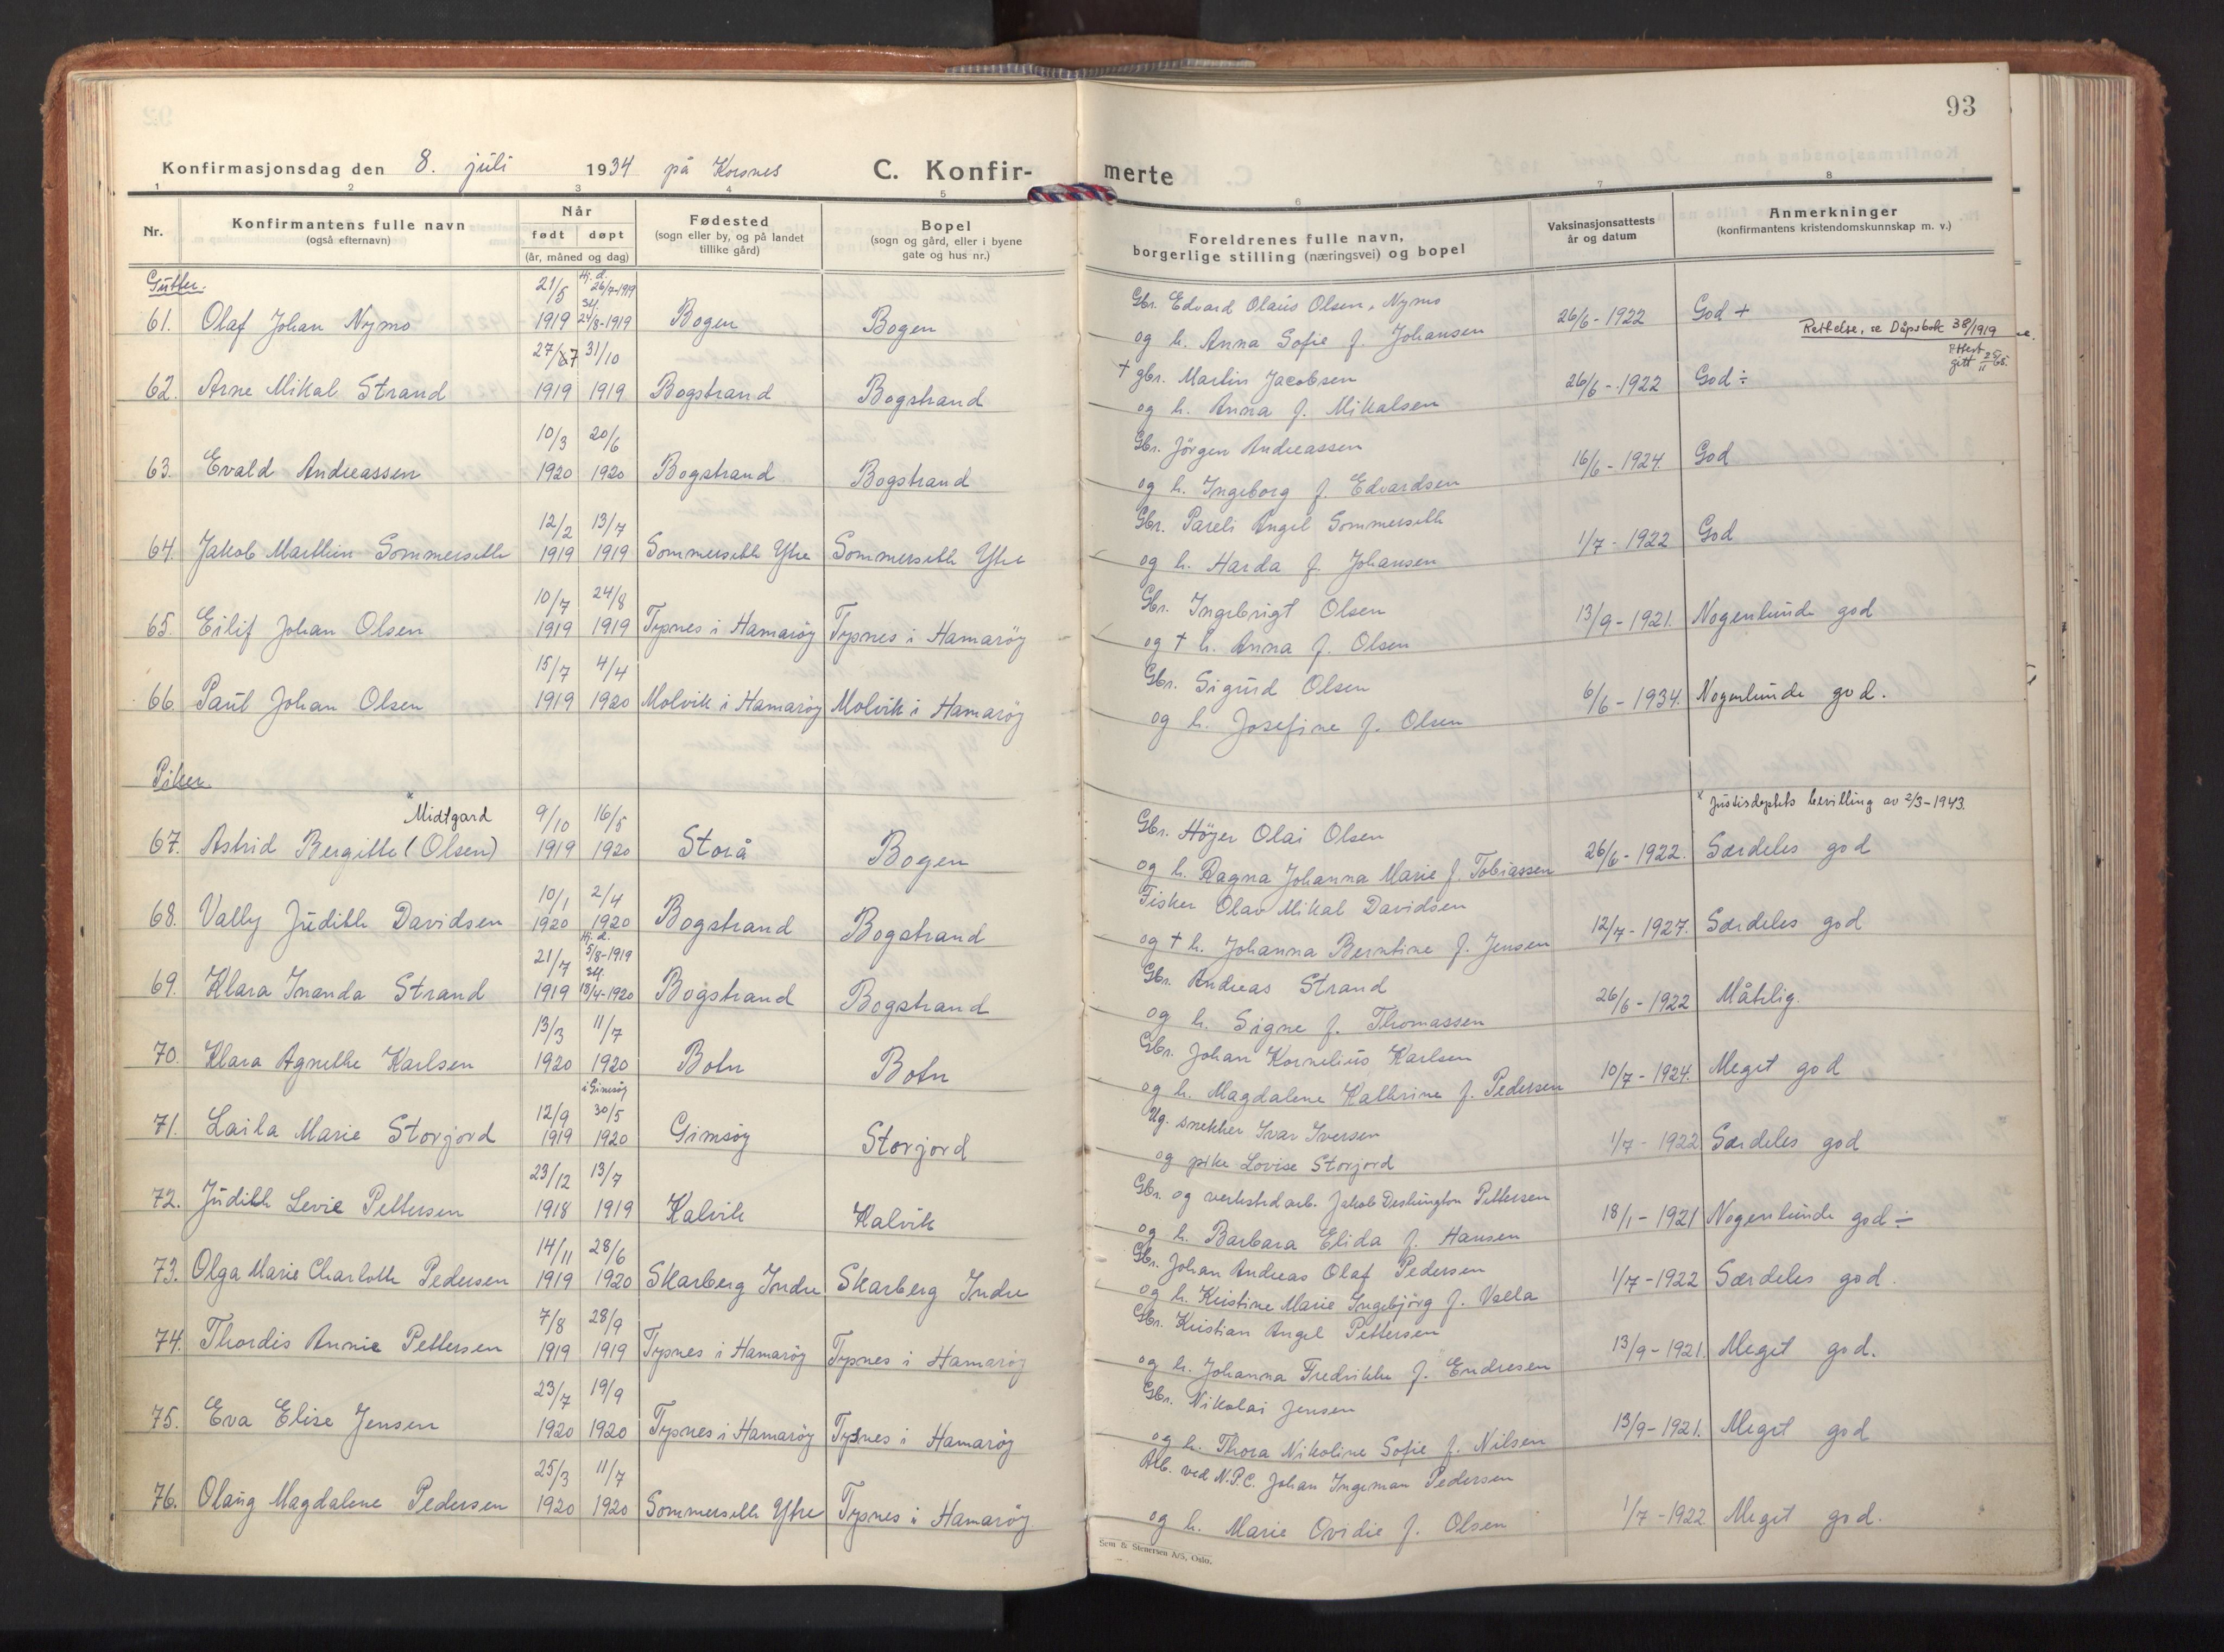 93
Konfirmasjonsdag den 8. juli 1934 på Korsnes C. Konfir- merte
1 2 3 4 5 6 7 8
Nr. Konfirmantens fulle navn (også efternavn) Når født døpt (år, måned og dag) Fødested (sogn eller by, og på landet tillike gård) Bopel (sogn og gård, eller i byene gate og hus nr.) Foreldrenes fulle navn, borgerlige stilling (næringsvei) og bopel Vaksinasjonsattests år og datum Anmerkninger (konfirmantens kristendomskunnskap m. v.)
Gutter.
21/5 Hj. d. 26/7-1919 Gbr. Edvard Olaus Olsen, Nymo
61. Olaf Johan Nymo 1919 stf. 24/8-1919 Bogen Bogen og h. Anna Sofie f. Johansen 26/6-1922 God +
Rettelse, se Dåpsbok 38/1919
Attest gitt
27/7 31/10 + gbr. Martin Jacobsen
62. Arne Mikal Strand 1919 1919 Bogstrand Bogstrand og h. Anna f. Mikalsen 26/6-1922 God ÷
10/3 20/6 Gbr. Jörgen Andreassen
63. Evald Andreassen 1920 1920 Bogstrand Bogstrand og h. Ingeborg f. Edvardsen 16/6-1924. God
12/2 13/7 Gbr. Pareli Angel Sommerseth
64. Jakob Marthin Sommerseth 1919 1919 Sommerseth Ytre Sommerseth Ytre og h. Harda f. Johansen 1/7-1922 God
10/7 24/8 Gbr. Ingebrigt Olsen
65. Eilif Johan Olsen 1919 1919 Typnes i Hamaröy Typnes i Hamaröy og + h. Anna f. Olsen 13/9-1921. Nogenlunde god
15/7 4/4 Gbr. Sigurd Olsen
66. Paul Johan Olsen 1919 1920 Molvik i Hamaröy Molvik i Hamaröy og h. Josefine f. Olsen 6/6-1934. Nogenlunde god.
Piker
x Midtgard 9/10 16/5 Gbr. Höyer Olai Olsen x Justisdeptets bevilling av 2/3-1943.
67. Astrid Bergitte (Olsen) 1919 1920 Storå Bogen og h. Ragna Johanna Marie f. Tobiassen 26/6-1922. Særdeles god
10/1 2/4 Fisker Olav Mikal Davidsen
68. Vally Judith Davidsen 1920 1920 Bogstrand Bogstrand og + h. Johanna Berntine f. Jensen 12/7-1927. Særdeles god
21/7 Hj. d. 5/8-1919 Gbr. Andreas Strand
69. Klara Inanda Strand 1919 stf. 18/4-1920 Bogstrand Bogstrand og h. Signe f. Thomassen 26/6-1922 Måtelig.
13/3 11/7 Gbr. Johan Kornelius Karlsen
70. Klara Agnethe Karlsen 1920 1920 Botn Botn og h. Magdalene Kathrine f. Pedersen 10/7-1924. Meget god
12/9 i Gimsöy 30/5 Ug. snekker Ivar Iversen
71. Laila Marie Storjord 1919 1920 Gimsöy Storjord og pike Lovise Storjord 1/7-1922 Særdeles god
23/12 13/7 Gbr. og verkstedarb. Jakob Deshington Pettersen
72. Judith Levie Pettersen 1918 1919 Kalvik Kalvik og h. Barbara Elida f. Hansen 18/1-1921 Nogenlunde god ÷
14/11 28/6 Gbr. Johan Andreas Olaf Pedersen
73. Olga Marie Charlotte Pedersen 1919 1920 Skarberg Indre Skarberg Indre og h. Kristine Marie Ingebjörg f. Valla 1/7-1922 Særdeles god.
7/8 28/9 Gbr. Kristian Angel Pettersen
74. Thordis Annie Pettersen 1919 1919 Typnes i Hamaröy Typnes i Hamaröy og h. Johanna Fredrikke f. Endresen 13/9-1921. Meget god.
23/7 19/9 Gbr. Nikolai Jensen
75. Eva Elise Jensen 1920 1920 Typnes i Hamaröy Tysnes i Hamaröy og h. Thora Nikoline Sofie f. Nilsen 13/9-1921. Meget god
25/3 11/7 Arb. ved N.P.C. Johan Ingeman Pedersen
76. Olaug Magdalene Pedersen 1920 1920 Sommerseth Ytre Typnes i Hamaröy og h. Marie Ovidie f. Olsen 1/7-1922 Meget god.
Sem & Stenersen A/S, Oslo.